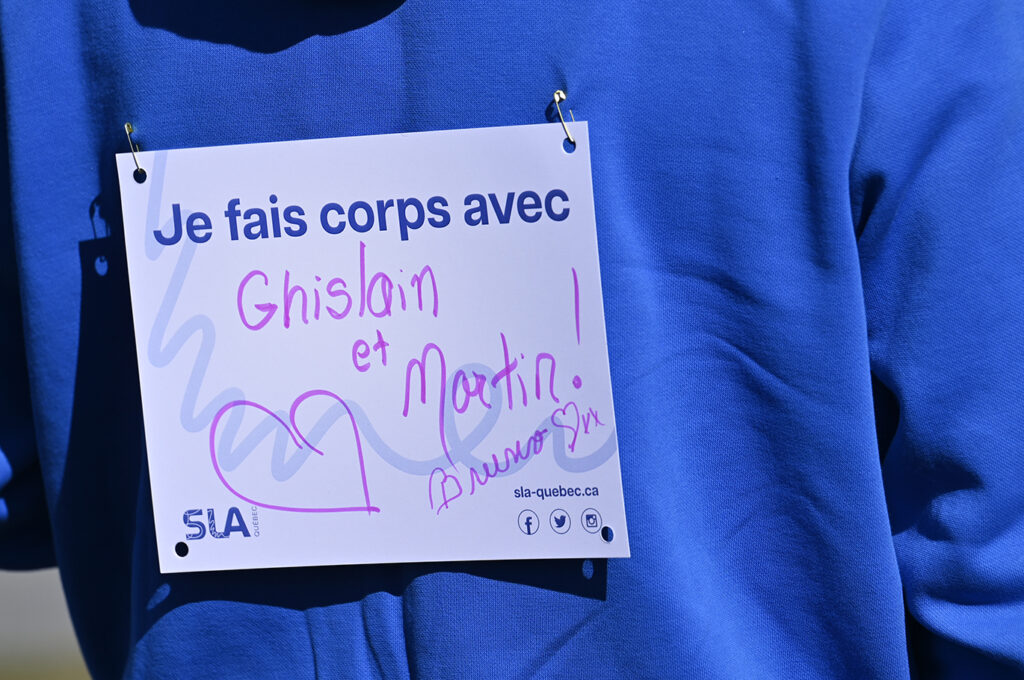 Je fais corps avec
Ghislain
et
Martin!
Bruno
sla-quebec.ca
SLA
QUÉBEC